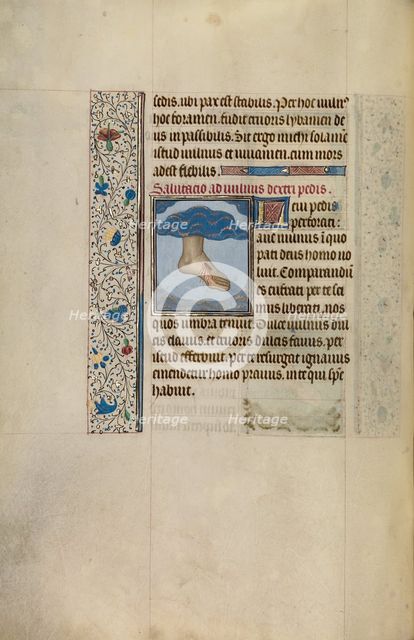 sedis, ubi pax est stabilis. Per hoc vuln9
hoc foramen. fudit cruoris lybamen de
us in passibilis. Sit ergo michi solame
istud vulnus et iuuamen. cum mors
adest flebilis.
Salutacio ad vulnus dextri pedis.
pedis
perforati
aue vulnus in quo
pati deus homo vo
luit. Comparandu
es
per te
mus liberati. nos
quos umbra tenuit. Dulce vulnus dul
cis clauus. et cruoris dulcis fauus. per
effebuit. per te resurgat ignauus
emendetur homo prauus. in te qui spe
habuit.
Heritage
Heritage
Heritage
Heritage
Heritage
Heritage
Heritage